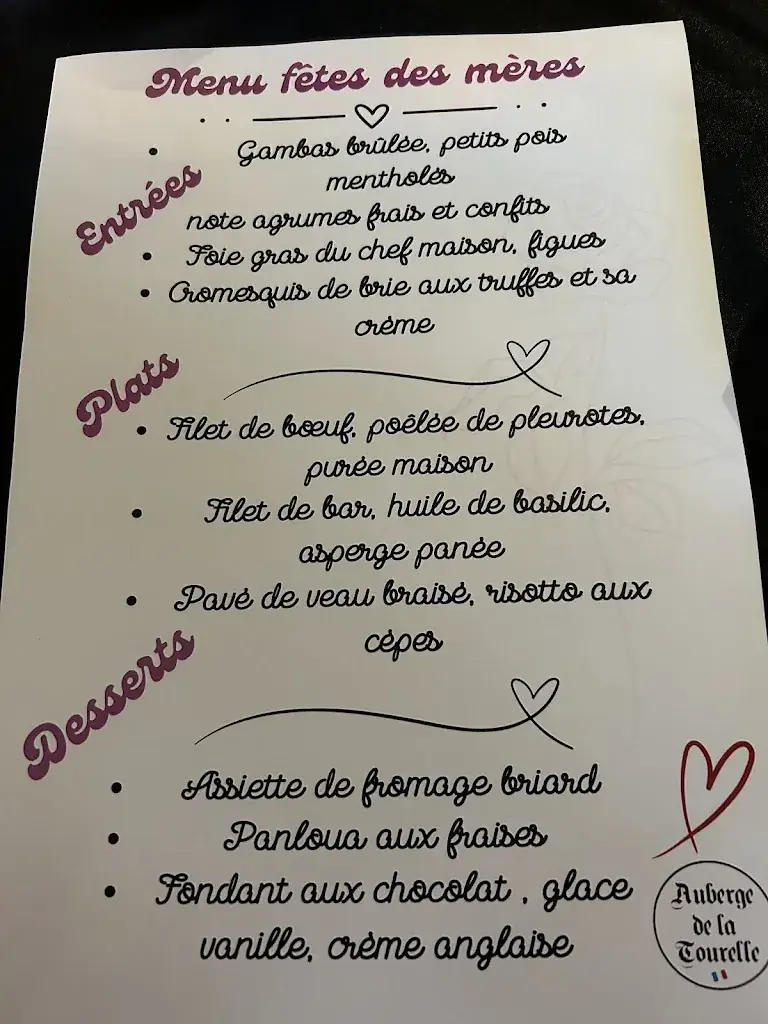 Menu fêtes des mères
Entrées
• Gambas brûlée, petits pois
mentholés
note agrumes frais et confits
• Foie gras du chef maison, figues
• Cromesquis de brie aux truffes et sa
crème
Plats
• Filet de bœuf, poêlée de pleurotes,
purée maison
• Filet de bar, huile de basilic,
asperge panée
• Pavé de veau braisé, risotto aux
cèpes
Desserts
• Assiette de fromage briard
• Panloua aux fraises
• Fondant aux chocolat , glace
vanille, crème anglaise
Auberge
de la
Tourelle